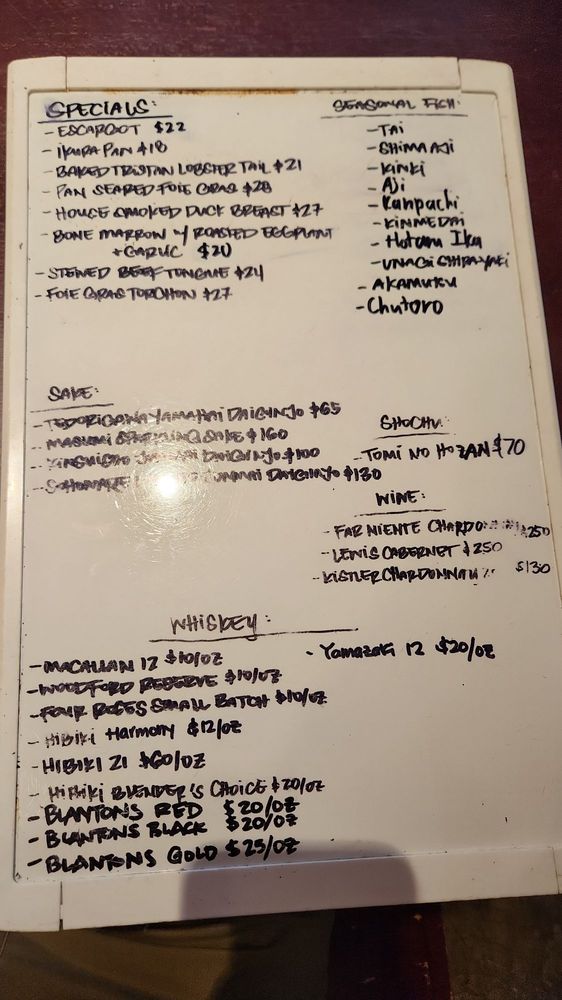 SPECIALS:
- ESCARGOT $22
- IKURA PAN $18
- BAKED TRISTAN LOBSTER TAIL $21
- PAN SEARED FOIE GRAS $28
- HOUSE SMOKED DUCK BREAST $27
- BONE MARROW W/ ROASTED EGGPLANT
+ GARLIC $20
- STEWED BEEF TONGUE $24
- FOIE GRAS TORCHON $27
SEASONAL FISH:
- TAI
- SHIMA AJI
- KINKI
- Aji
- Kanpachi
- KINMEDAI
- Hotaru Ika
- UNAGI SHIRAYAKI
- AKAMUTSU
- Chutoro
SAKE:
- TEDORIGAWA YAMAHAI DAIGINJO $65
- MASUMI SPARKLING SAKE $160
- DAIGINJO $100
- JUNMAI DAIGINJO $130
SHOCHU:
- TOMI NO HOZAN $70
WINE:
- FAR NIENTE CHARDONNAY $250
- LEWIS CABERNET $250
- KISTLER CHARDONNAY $130
WHISKEY:
- MACALLAN 12 $10/OZ
- WOODFORD RESERVE $10/OZ
- FOUR ROSES SMALL BATCH $10/OZ
- HIBIKI Harmony $12/OZ
- HIBIKI 21 $60/OZ
- HIBIKI BLENDER'S CHOICE $20/OZ
- BLANTONS RED $20/OZ
- BLANTONS BLACK $20/OZ
- BLANTONS GOLD $25/OZ
- Yamazaki 12 $20/OZ